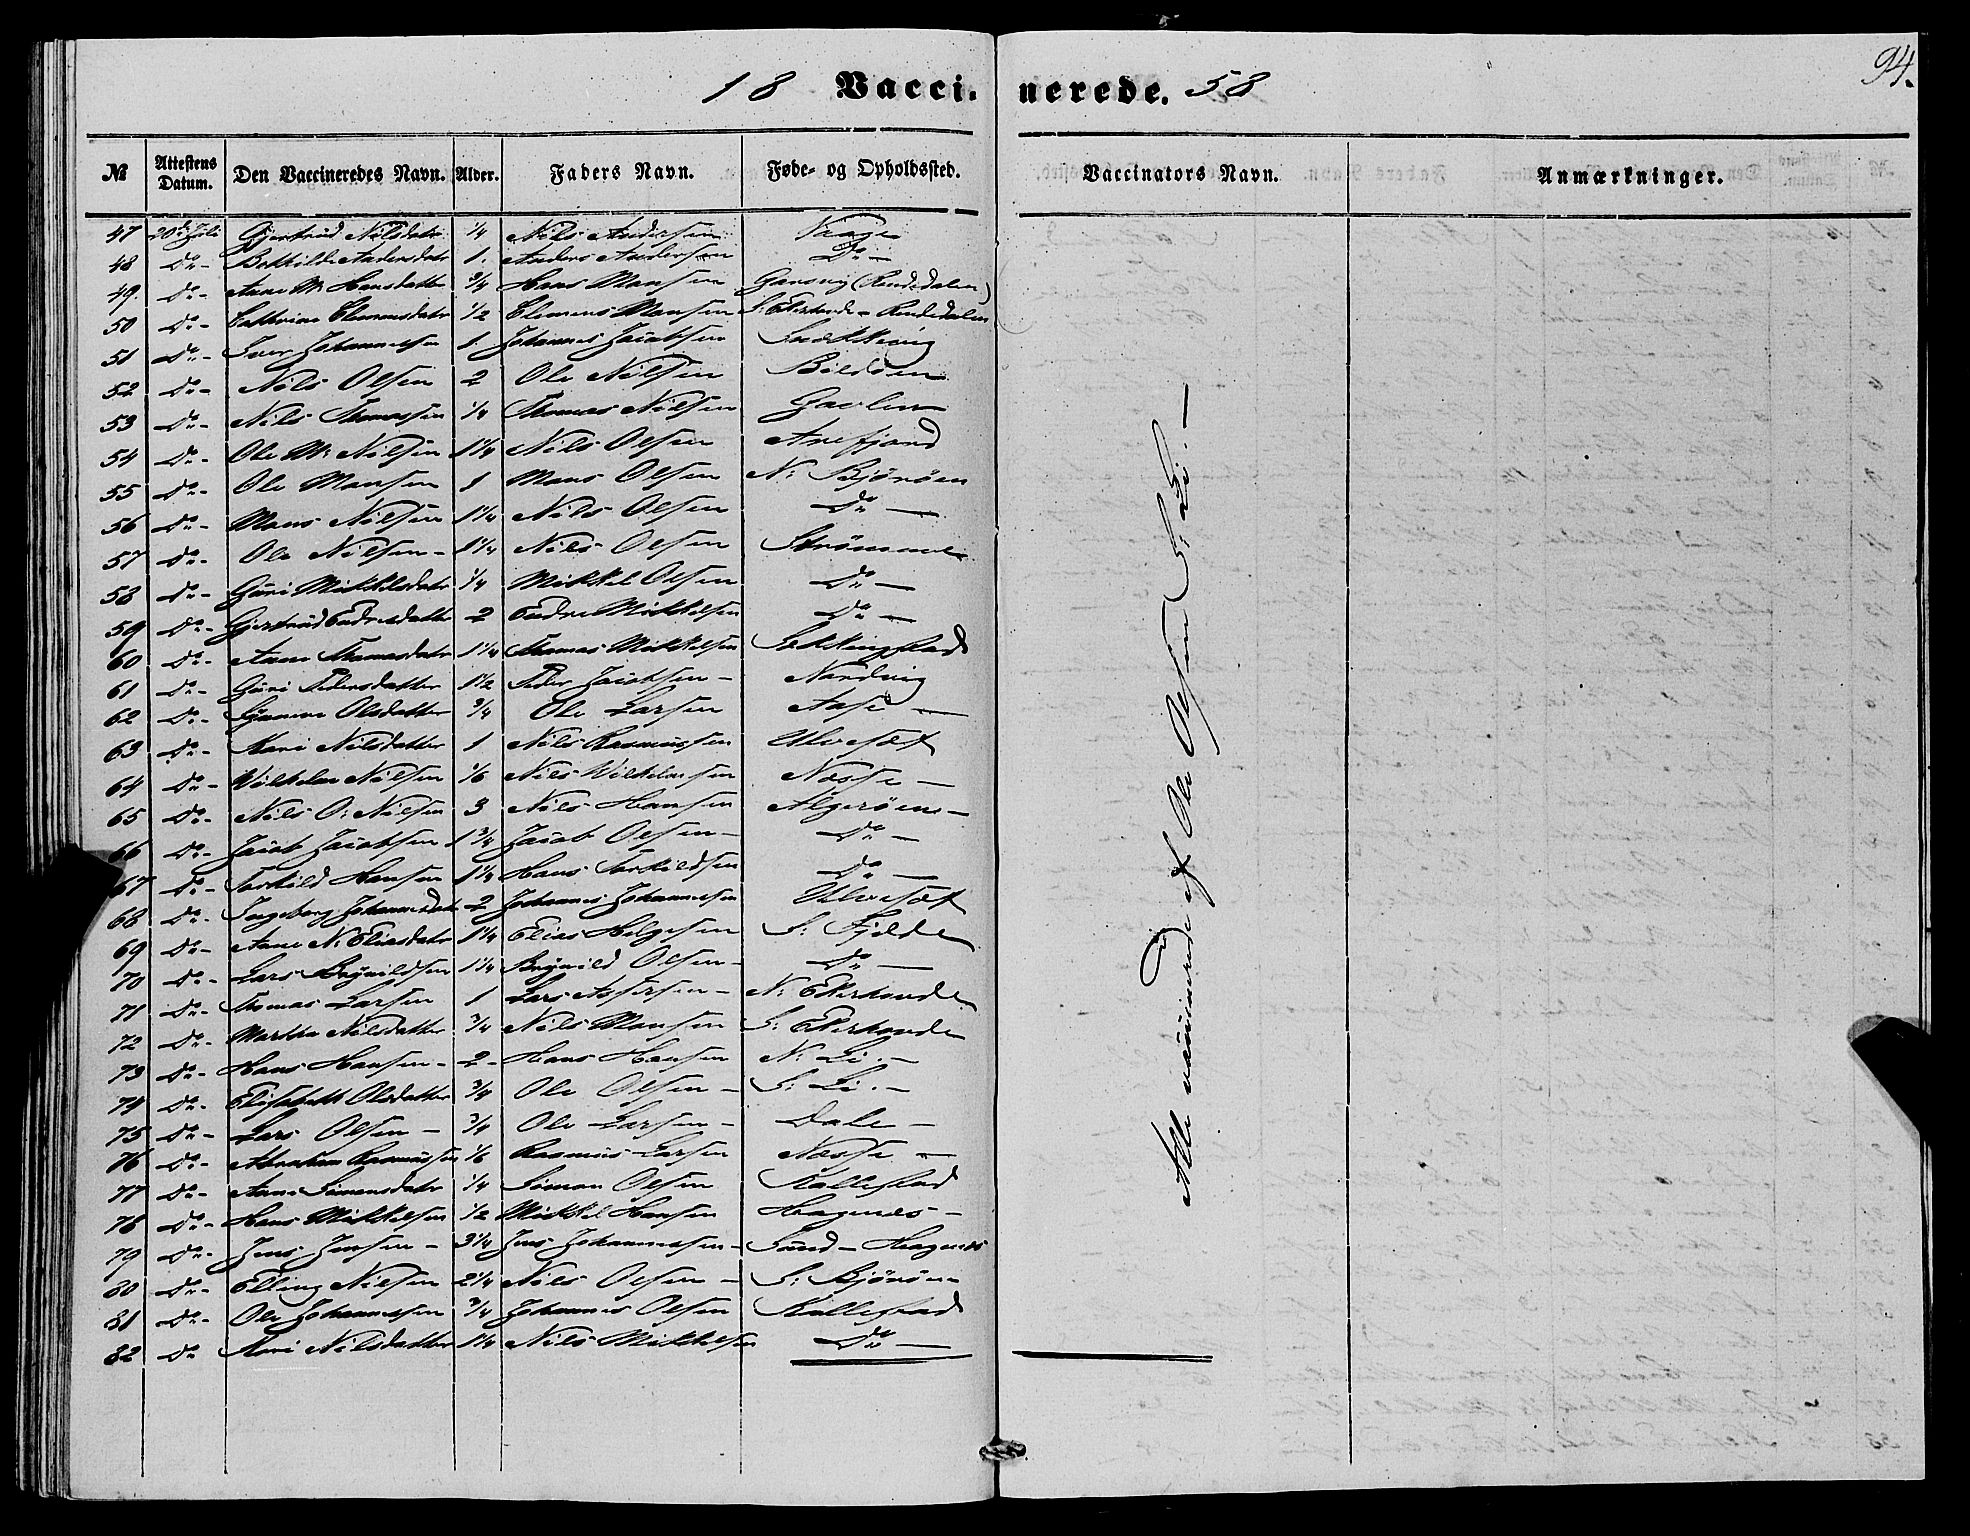 94.
18 Vacci- nerede. 58
№ Attestens Datum. Den Vaccineredes Navn. Alder. Faders Navn. Føde- og Opholdssted. Vaccinators Navn. Anmærkninger.
47 20de Juli Gjertrud Nilsdatr 1/4 Nils Andersen Vaage
48 Do- Bothilde Andersdatr 1. Anders Andersen Do-
49. Do- Anne M. Hansdatter 3/4 Hans Monsen (Rendedalen)
50 Do- Cathrine Clemensdatr 1/2 Clemens Monsen S: Ekerhovde - Rendedalen
51 Do- Iver Johannesen 1. Johannes Jacobsen Snekkevig
52 Do- Nils Olsen 2 Ole Nilsen Bildöen
53 Do- Nils Thomassen 1/4 Thomas Nilsen
54 Do- Ole M. Nilsen 1 1/4 Nils Olsen Arefjord
55 Do- Ole Monsen 1 Mons Olsen N: Björöen
56 Do- Mons Nilsen 1 1/4 Nils Olsen Do -
57 Do- Ole Nilsen- 1 1/4 Nils Olsen Strömme
58 Do- Guri Mikkelsdatr 1/4 Mikkel Olsen Do -
59 Do- Gjertrud Endresdatter 2 Endre Mikkelsen Do -
60 Do- Anne Thomasdatr 1 1/4 Thomas Mikkelsen Sekkingstad
61 Do- Guri Pedersdatter 1 1/2 Peder Jacobsen - Nordvig
62 Do- Olsdatter 3/4 Ole Larsen
63 Do- Kari Nilsdatter 1 Nils Rasmussen Ulveset
64 Do- Wilhelm Nilsen 1/6 Nils Wilhelmsen Nesse -
65 Do- Nils O: Nilsen 3 Nils Hansen Algeröen-
66 Do- Jacob Jacobsen 1 3/4 Jacob Olsen- Do -
67 Do- Torkild Hansen 1 1/4 Hans Torkildsen Do -
68 Do- Ingeborg Johannesdatr 2 Johannes Johannesen Ulveset
69 Do- Anne N: Eliasdatr 1 1/4 Elias Helgesen S: Fjelde
70 Do- Lars Brynildsen 1 1/4 Brynild Olsen- Do -
71 Do- Thomas Larsen 1 Lars Assersen- N: Ekerhovde
72 Do- Martha Nilsdatter 3/4 Nils Monsen S: Ekerhovde
73 Do- Hans Hansen- 2- Hans Hansen N: Li.-
74 Do- Elisabeth Olsdatter 3/4 Ole Olsen - S: Li.-
75 Do- Lars Olsen - 3/4 Ole Larsen- Dale -
76 Do- Abraham Rasmussen 1/6 Rasmus Larsen Nesse -
77 Do- Anna Simonsdatr 1/4 Simon Olsen Kallestad
78 Do- Hans Mikkelsen 1/2 Mikkel Hansen Hagenes-
79 Do- Jens Jensen - 3 1/4 Jens Johannessen- Sund - Hagenes
80 Do- Elling Nilsen 2 1/4 Nils Olsen - S: Björöen
81 Do- Ole Johannessen 3/4 Johannes Olsen Kallestad
82 Do Kari Nilsdatter 1 1/4 Nils Mikkelsen Do -
Alle vaccinerede af Ole Olsen S. Li.-